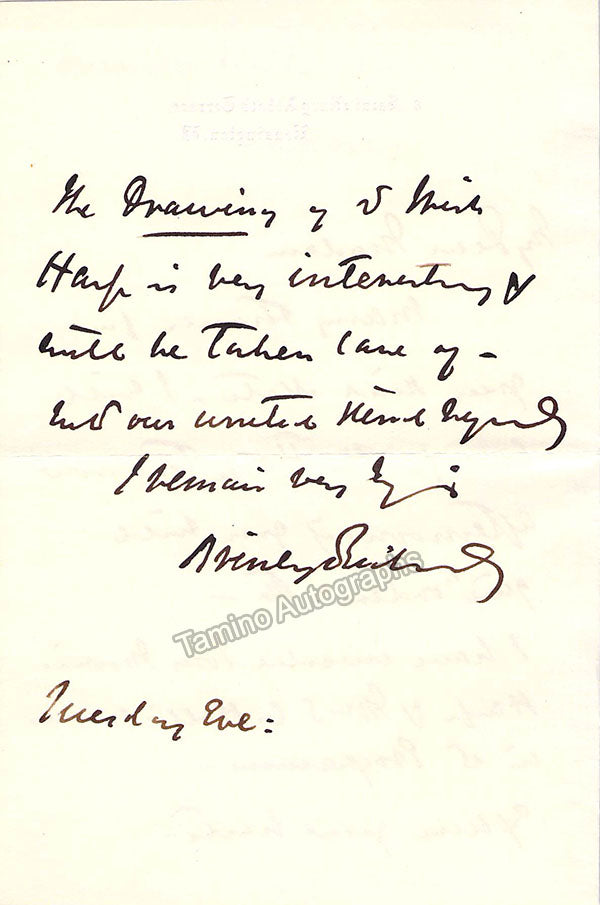 The Drawing of
Harp is very interesting &
will be taken care of –
our united kind regards
I remain very
Brinley Richards
Tamino Autographs
Tuesday Eve: